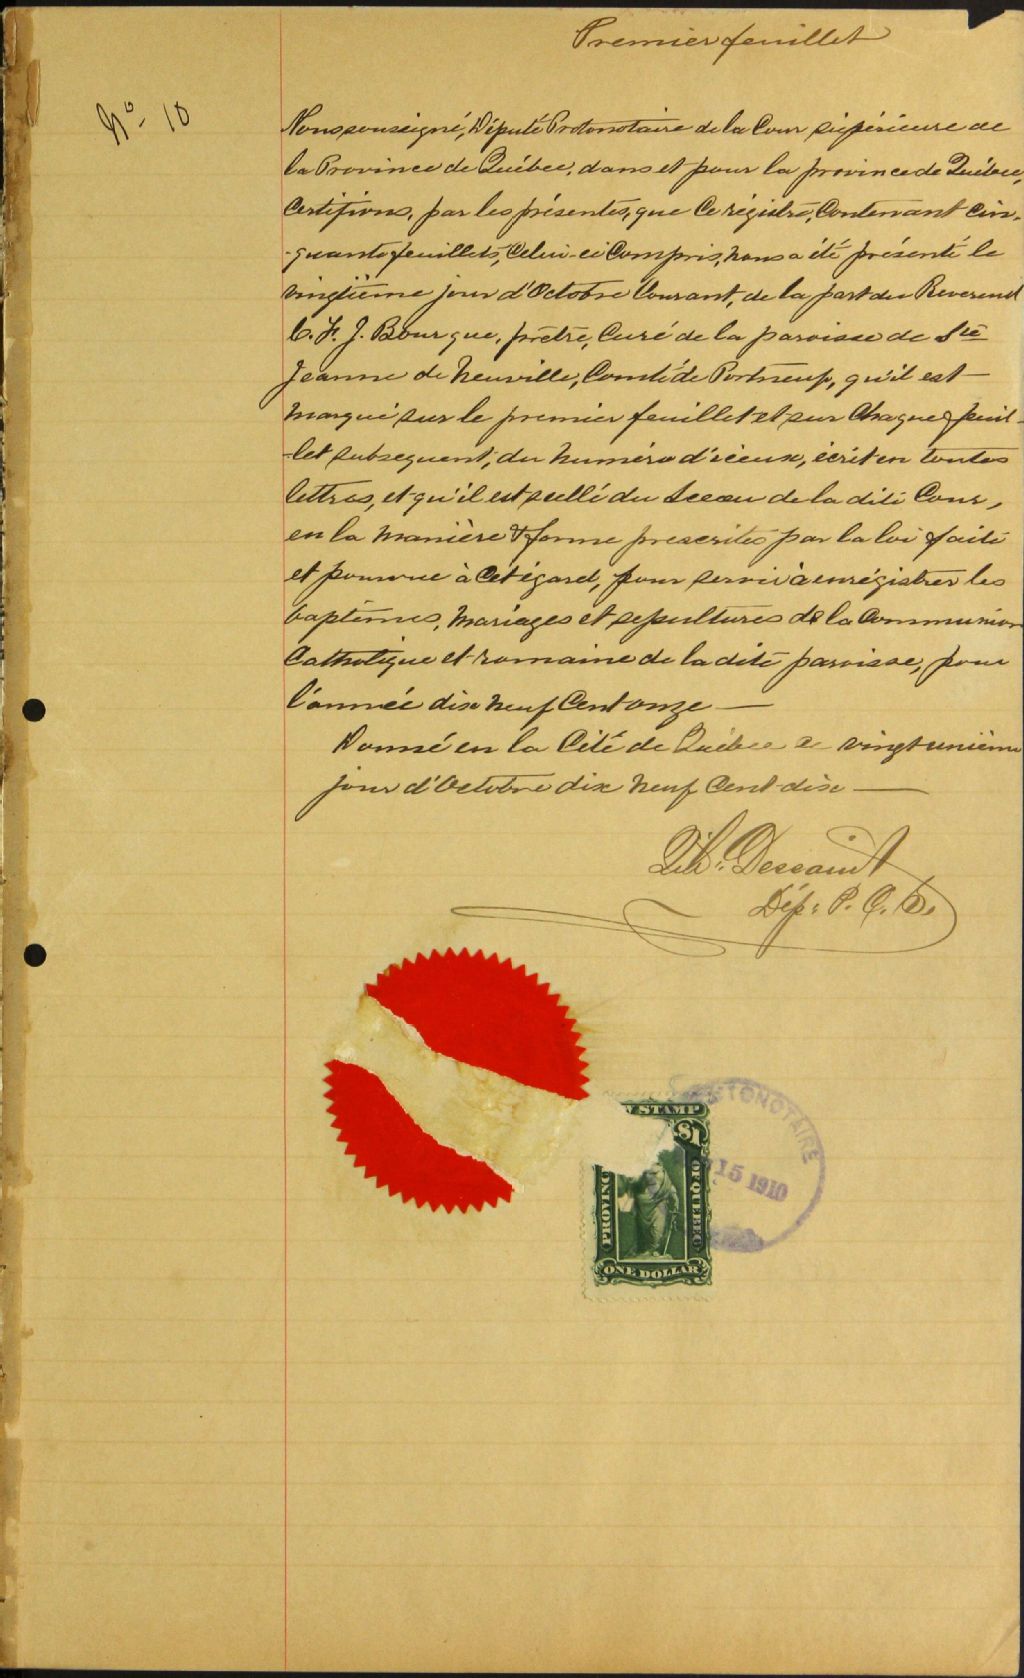 Premier feuillet
No 10
Nous soussigné, Député Protonotaire de la Cour supérieure de
la Province de Québec, dans et pour la province de Québec,
Certifions, par les présentes, que ce régistre, Contenant cin-
-quante feuillets, Celui-ci Compris, nous a été présenté le
vingtième jour d'Octobre Courant, de la part du Reverend
F. J. Bourque, prêtre, Curé de la paroisse de Ste
Jeanne de Neuville, Comté de Portneuf, qu'il est
marqué sur le premier feuillet et sur Chaque feuil-
-let subsequent, du numéro d'iceux, écrit en toutes
lettres, et qu'il est scellé du Sceau de la dite Cour,
en la manière & forme prescrites par la loi faite
et pourvue à Cet égard, pour servir à enrégistrer les
baptêmes, Mariages et sepultures de la Communion
Catholique et romaine de la dite paroisse, pour
l'année dix neuf Cent onze —
Donné en la Cité de Québec ce vingt unième
jour d'Octobre dix neuf Cent dix —
Dép. P. C. S.
STAMP
$1
PROVINC
OF QUEBEC
ONE DOLLAR
TONOTAIRE
15 1910